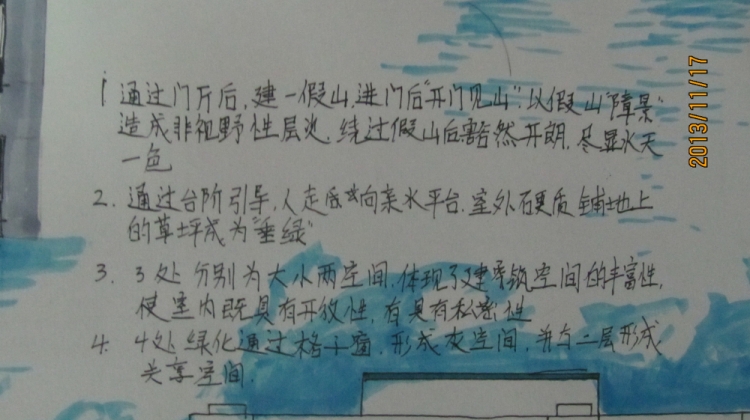 1 通过门厅后,建一假山,进门后"开门见山".以假山"障景"
造成非视野性层次.绕过假山后豁然开朗.尽显水天
一色
2. 通过台阶引导,人走向亲水平台.室外石硬质铺地上
的草坪成为"垂绿"
3. 3处分别为大小两空间.体现了建筑空间的丰富性,
使室内既具有开放性,有具有私密性
4. 4处绿化通过格十窗,形成灰空间,并与二层形成
共享空间.
2013/11/17